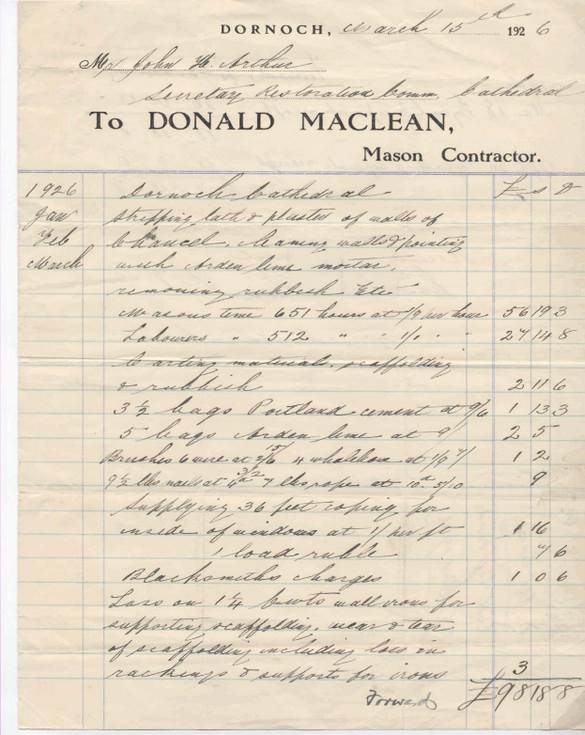 DORNOCH, March 15th 1926
Mr John H. Arthur
Secretary Restoration Comm. Cathedral
To DONALD MACLEAN,
Mason Contractor.
1926 Dornoch Cathedral £ s d
Jan Stripping lath & plaster of walls of
Feb Chancel, cleaning walls & pointing
March with Arden lime mortar,
removing rubbish Etc
Masons time 651 hours at 1/9 per hour 56 19 3
Labourers " 512 " " 1/ " " 27 14 8
Carting materials, scaffolding
& rubbish 2 11 6
3½ bags Portland cement at 9/6 1 13 3
5 bags Arden lime at 9 2 5
Brushes 6 wire at 2/6 15/ 4 whalebone at 1/9 7/ 1 2
9½ lbs nails at 4d 3/2 7 lbs rope at 10d 5/10 9
Supplying 36 feet coping for
inside of windows at 1/ per ft 1 16
1 load ruble 7 6
Blacksmiths charges 1 0 6
Loss on 1¼ Cwts wall irons for
supporting scaffolding, wear & tear
of scaffolding including loss on
rackings & supports for irons 3
Forward £98 18 8